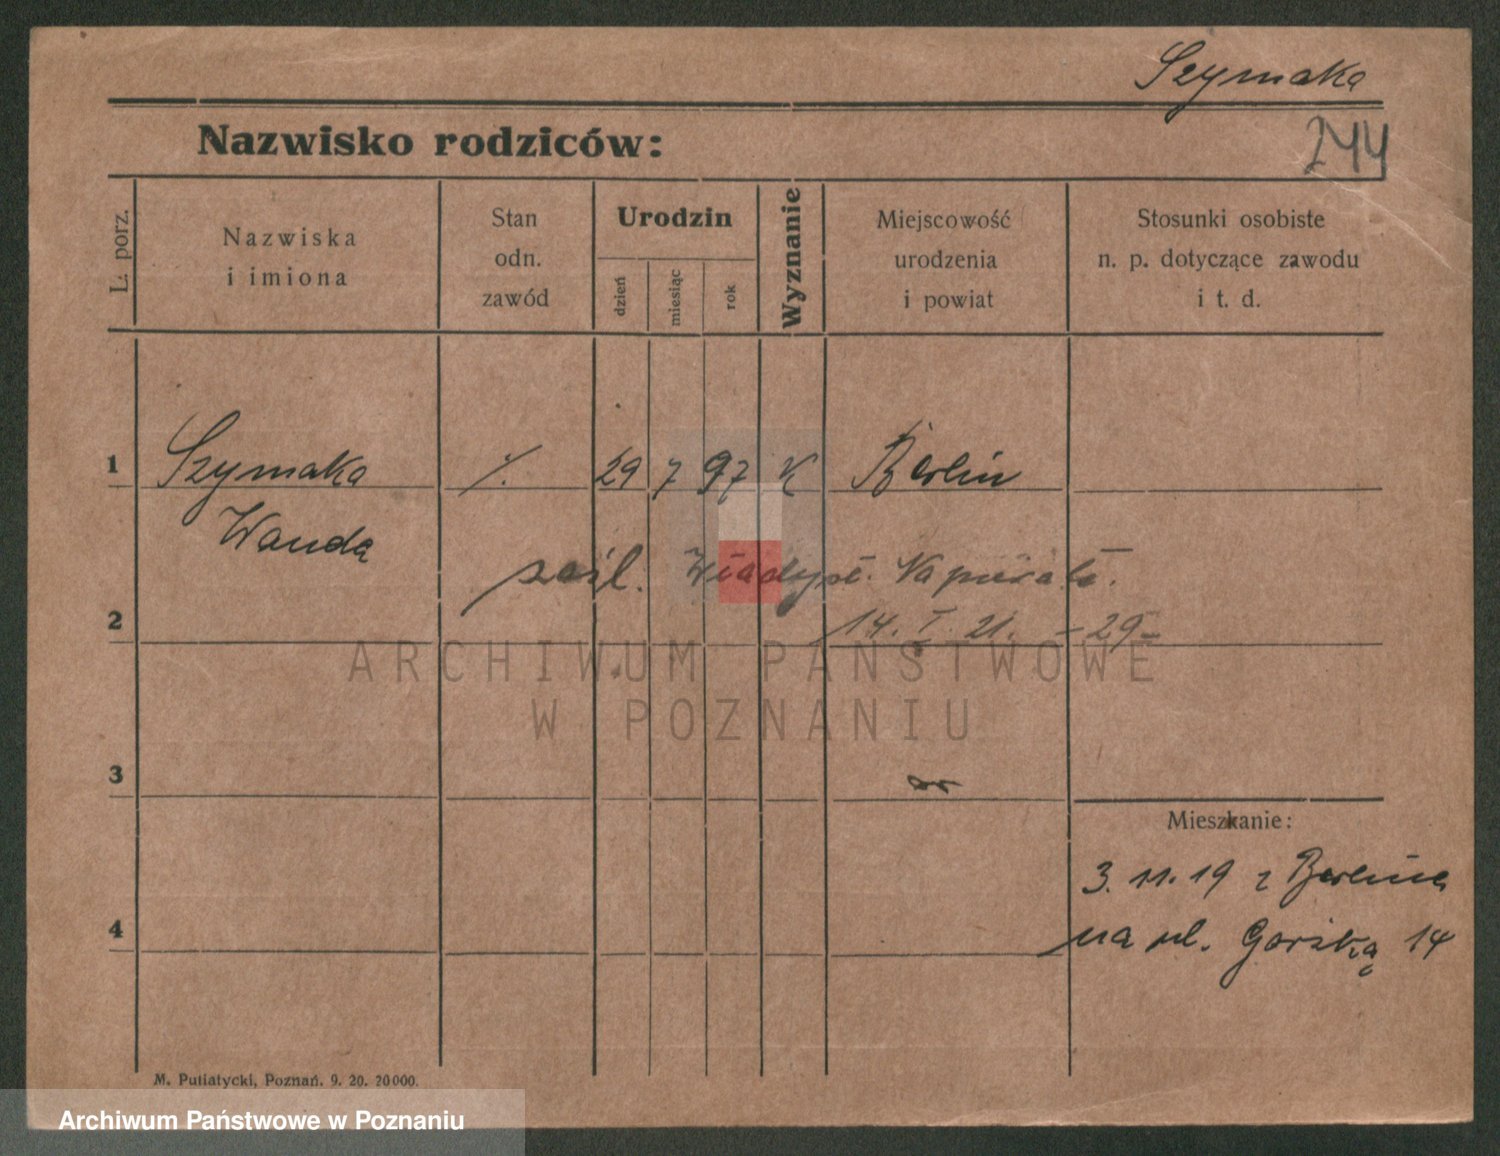 Szymaka
Nazwisko rodziców:
244
L. porz.
Nazwiska
i imiona
Stan
odn.
zawód
Urodzin
dzień
miesiąc
rok
Wyznanie
Miejscowość
urodzenia
i powiat
Stosunki osobiste
n. p. dotyczące zawodu
i t. d.
1 Szymaka /. 29 7 97 K Berlin
Wanda
zaśl. Władysł.
2 14. I. 21. - 29 -
ARCHIWUM PAŃSTWOWE
W POZNANIU
3
Mieszkanie:
3. 11. 19 z Berlina
4 na ul. Górską 14
M. Putiatycki, Poznań. 9. 20. 20000.
Archiwum Państwowe w Poznaniu